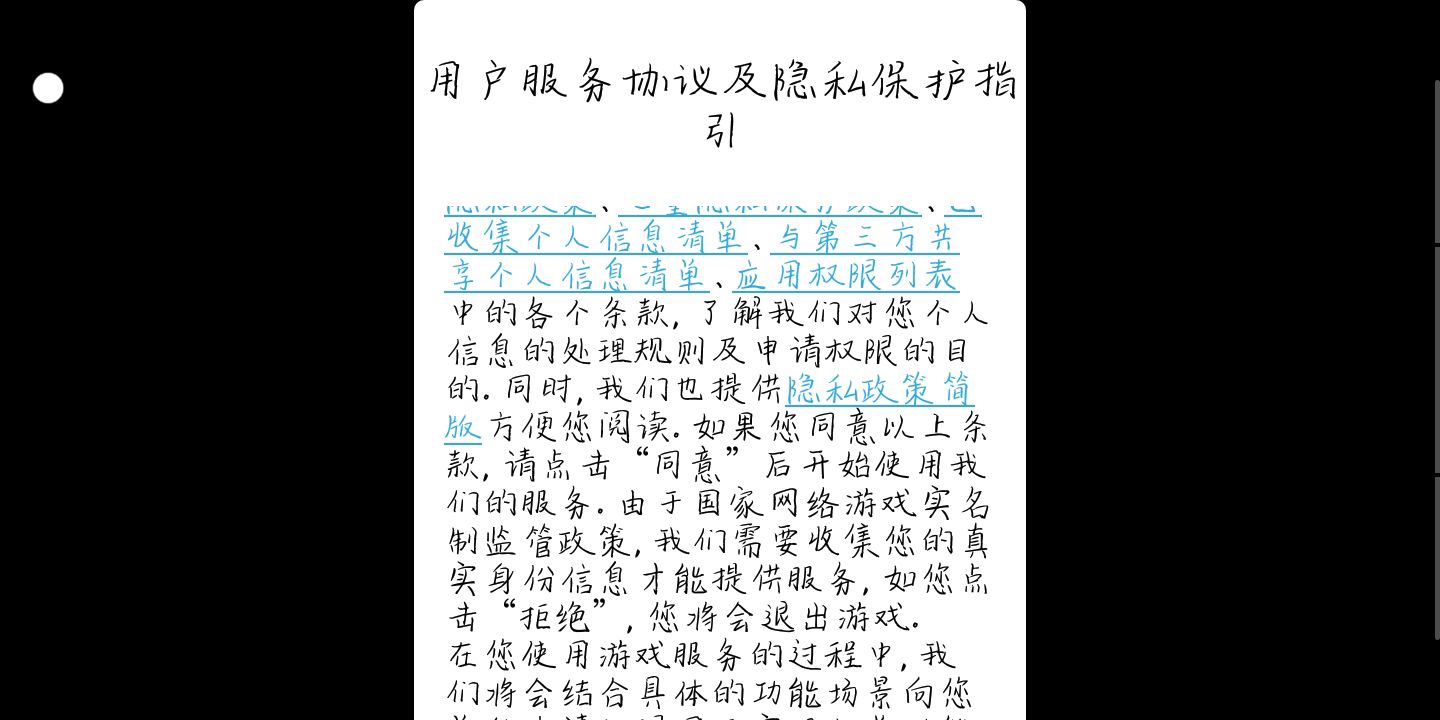 用户服务协议及隐私保护指
引
隐私政策、儿童隐私保护政策、已
收集个人信息清单、与第三方共
享个人信息清单、应用权限列表
中的各个条款,了解我们对您个人
信息的处理规则及申请权限的目
的.同时,我们也提供隐私政策简
版方便您阅读.如果您同意以上条
款,请点击“同意”后开始使用我
们的服务.由于国家网络游戏实名
制监管政策,我们需要收集您的真
实身份信息才能提供服务,如您点
击“拒绝”,您将会退出游戏.
在您使用游戏服务的过程中,我
们将会结合具体的功能场景向您